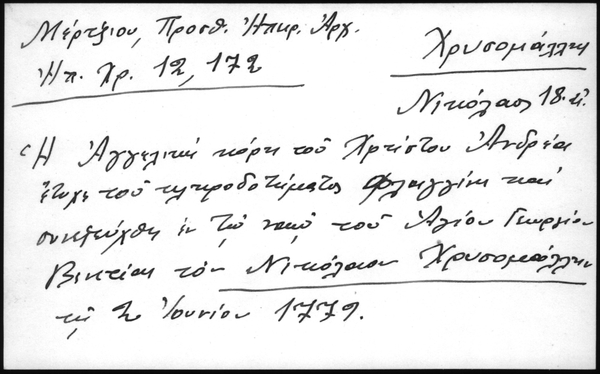 Μέρτζιου, Προσθ. Ἠπειρ. Ἀρχ.
Ἠπ. Χρ. 12, 172
Χρυσομάλλης
Νικόλαος 18. αἰ.
Ἡ Ἀγγελικὴ κόρη τοῦ Χρήστου Ἀνδρέα
ἔτυχε τοῦ κληροδοτήματος Φλαγγίνη καὶ
συνεζεύχθη ἐν τῷ ναῷ τοῦ Ἁγίου Γεωργίου
Βενετίας τὸν Νικόλαον Χρυσομάλλην
τῇ 2 Ἰουνίου 1779.